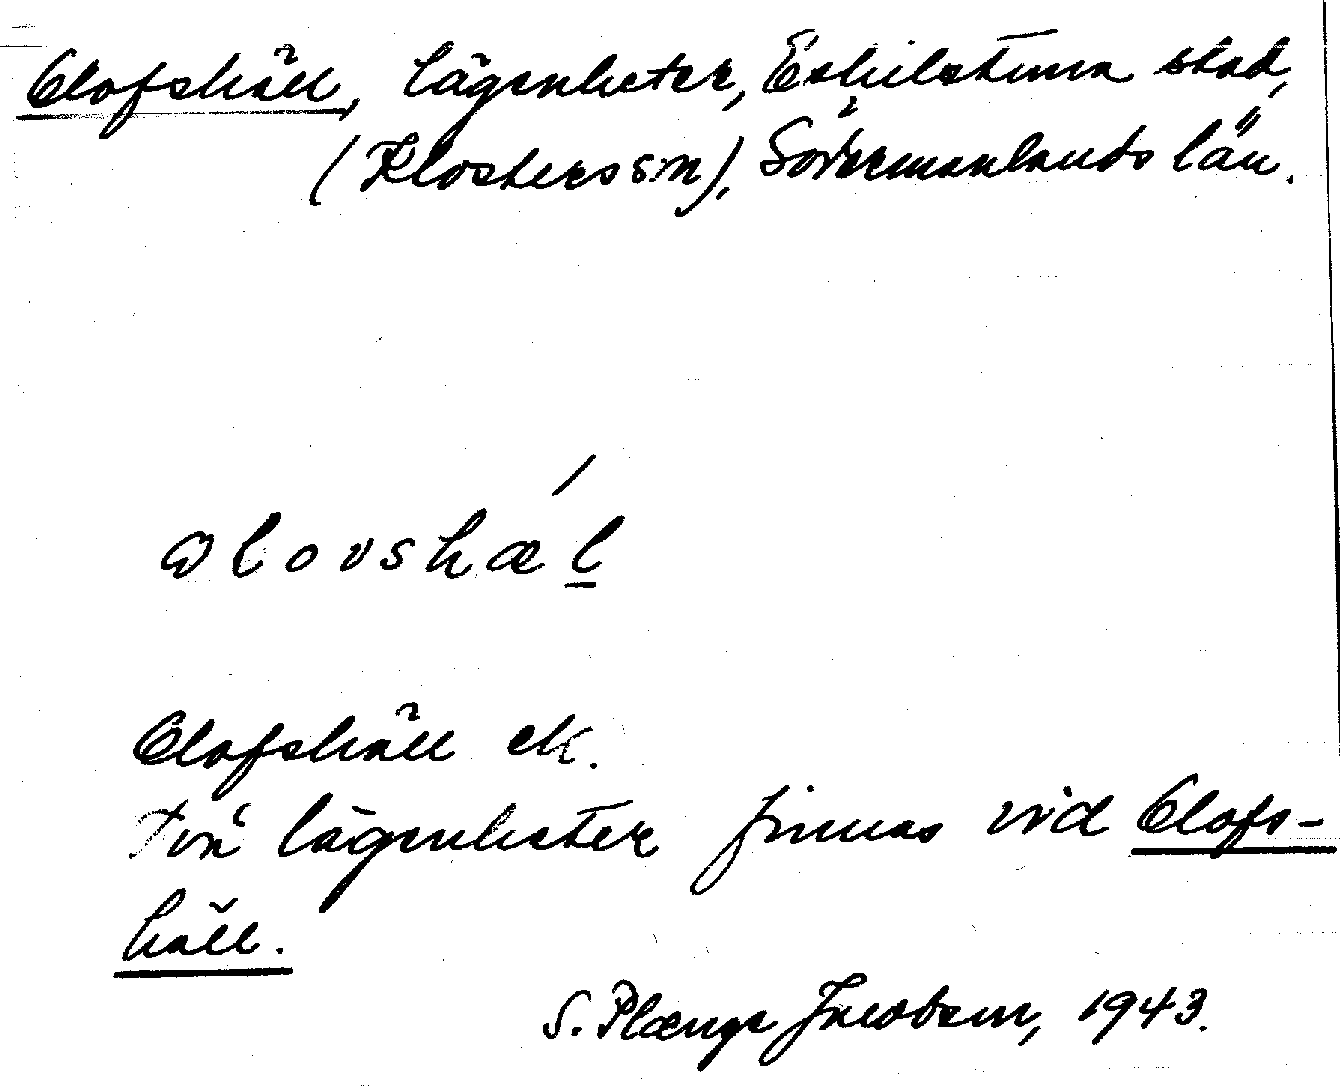 Olofshäll, lägenheter, Eskilstuna stad,
(Klosters sn), Södermanlands län.
olovshæl
Olofshäll ek.
Två lägenheter finnas vid Olofs-
häll.
S. Plænge Jacobson, 1943.